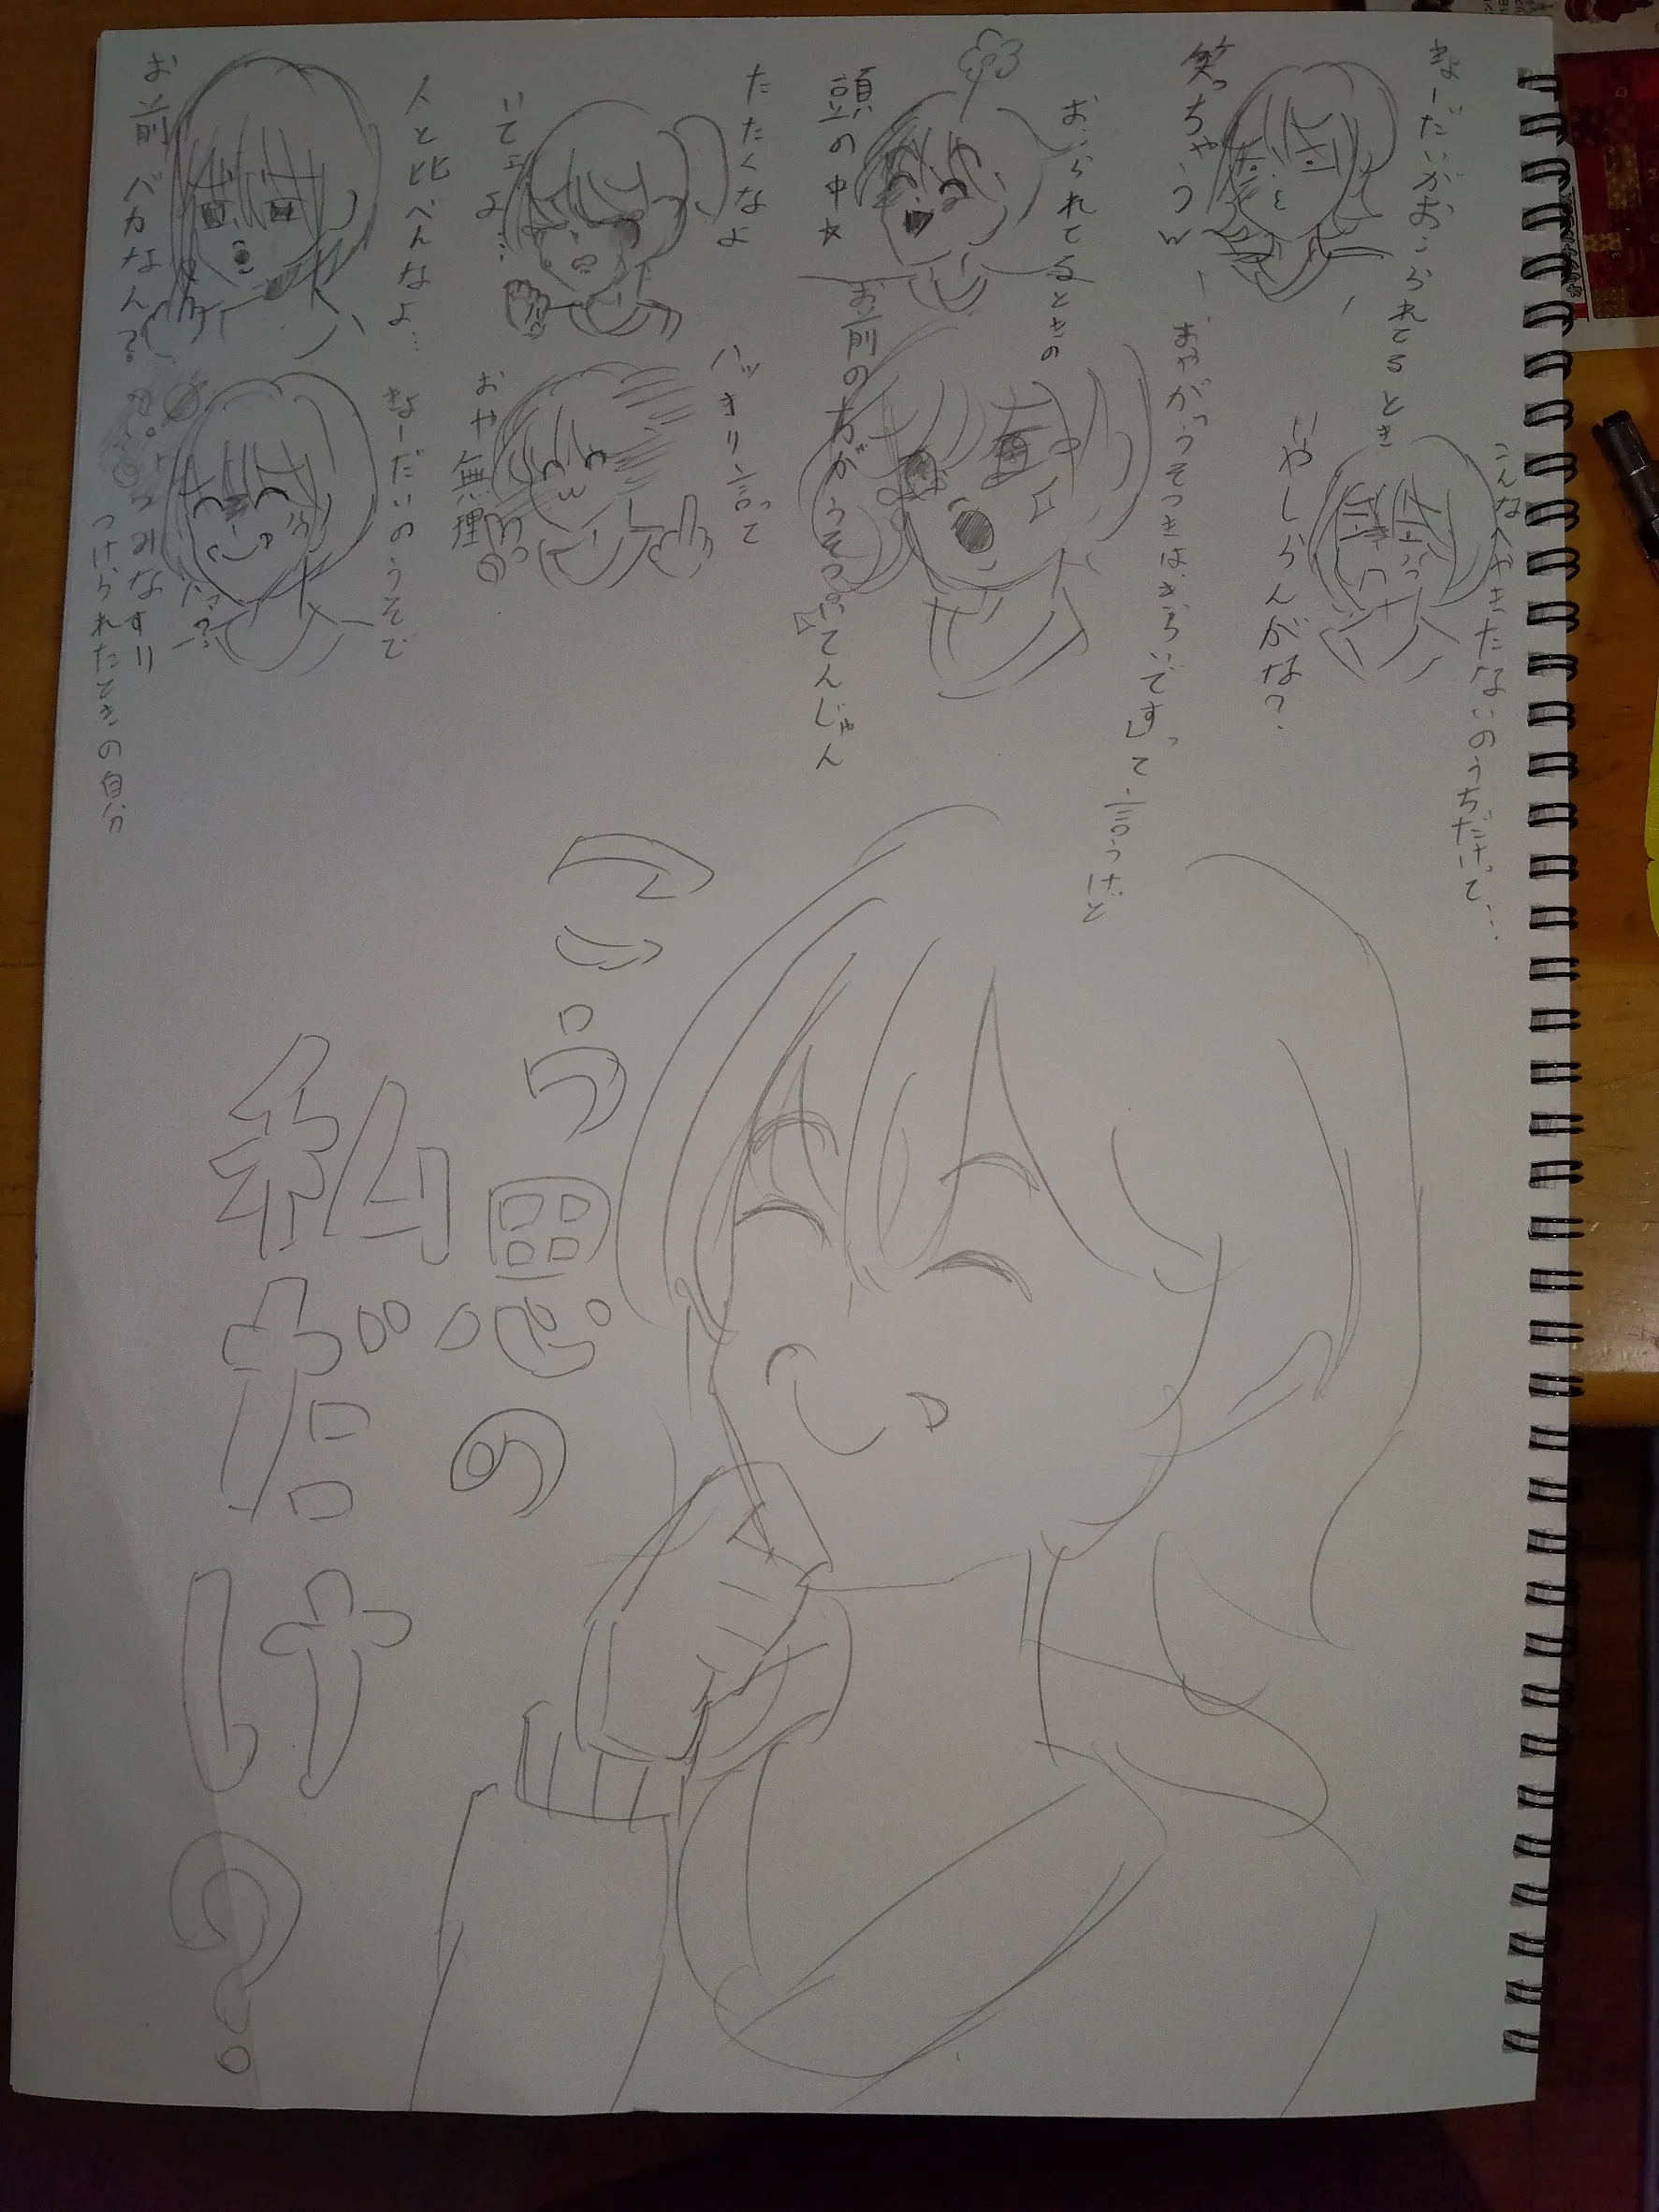 きょーだいがおこられてるとき
笑っちゃうw
おこられてるときの
頭の中☆
たたくなよ
いてぇよ…
人と比べんなよ…
お前バカなん?
こんなへやきたないのうちだけって…
いやしらんがな?
おやがうそつきはきらいですって言うけど
お前の方がうそついてんじゃん
ハッキリ言って
おや無理
きょーだいのうそで
つみなすり
つけられたときの自分
は?
こう思うの
私だけの?